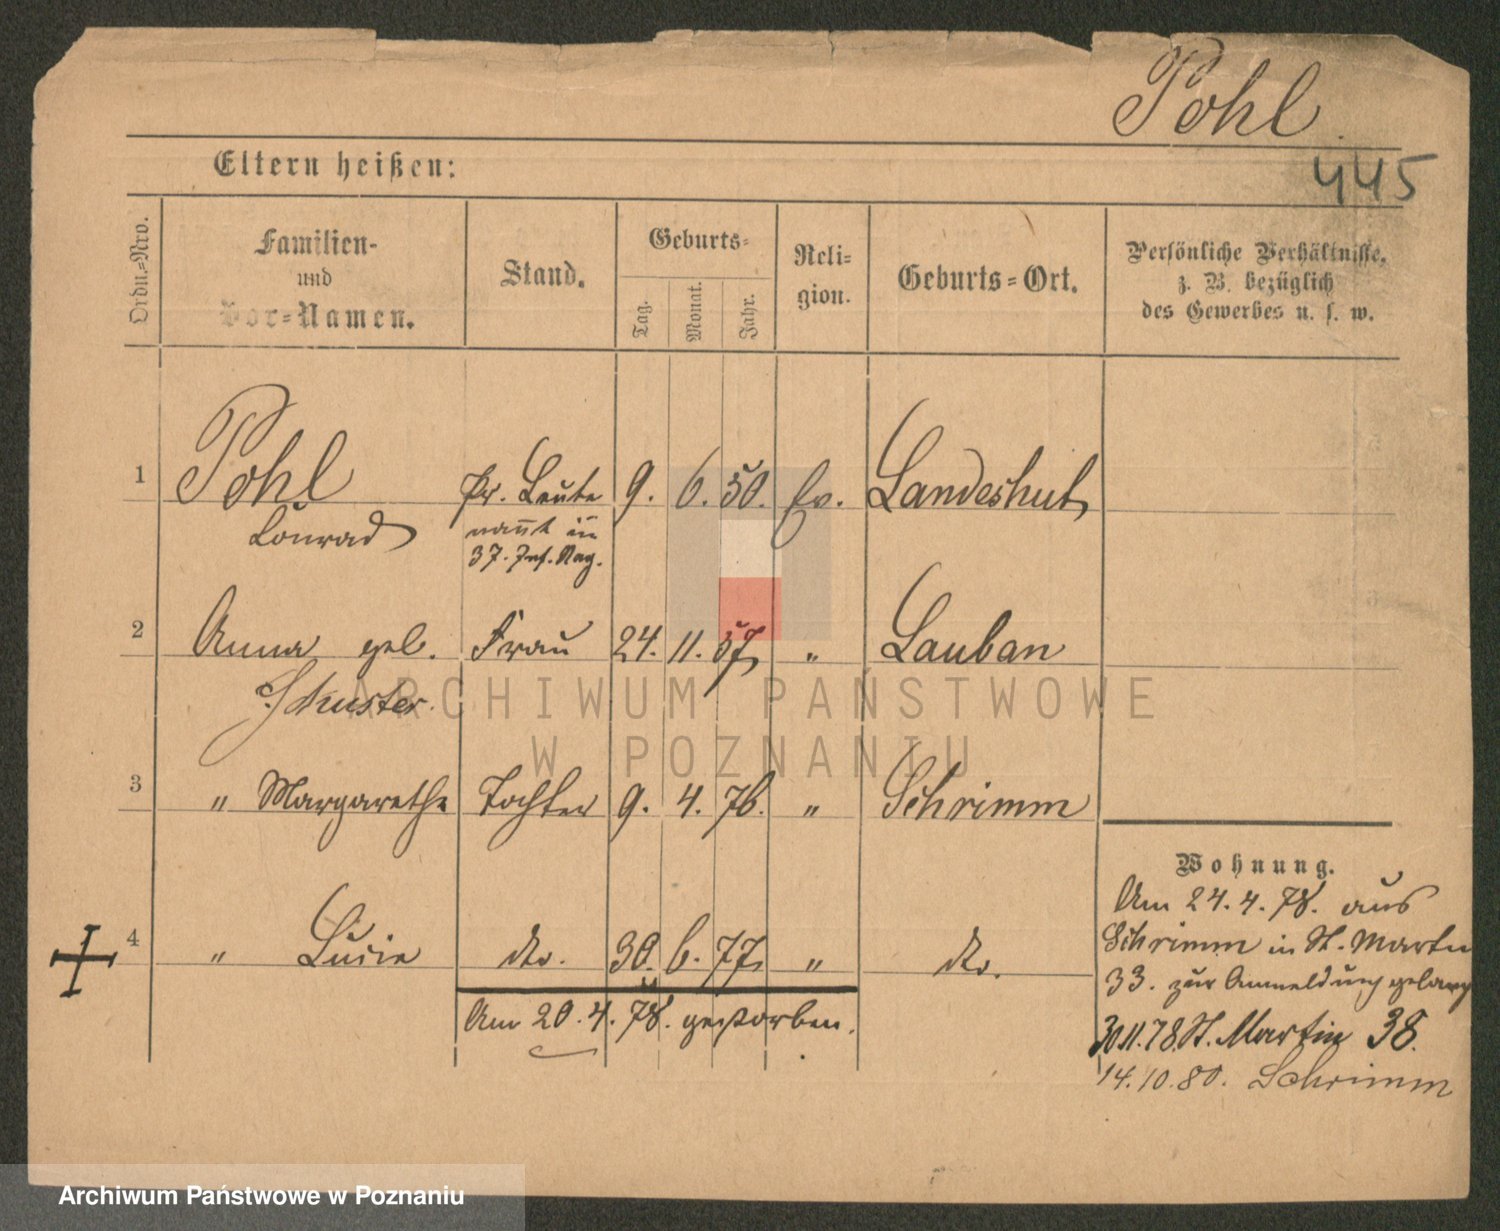 Pohl.
445
Eltern heißen:
Ordn.-Nro.
Familien-
und
Vor-Namen.
Stand.
Geburts-
Tag.
Monat.
Jahr.
Reli-
gion.
Geburts-Ort.
Persönliche Verhältnisse,
z. B. bezüglich
des Gewerbes u. s. w.
1 Pohl Pr. Leute 9. 6. 50. Ev. Landeshut
Conrad nant im
37. Inf. Reg.
2 Anna geb. Frau 24. 11. 57, " Lauban
Schuster.
3 " Margarethe Tochter 9. 4. 76. " Schrimm
4 " Lucie dto. 30. 6. 77, " dto.
Am 20.4.78. gestorben.
Wohnung.
Am 24.4.78. aus
Schrimm in St. Martin
33. zur Anmeldung gelang
30.11.78. St. Martin 38.
14.10.80. Schrimm
ARCHIWUM PAŃSTWOWE
W POZNANIU
Archiwum Państwowe w Poznaniu